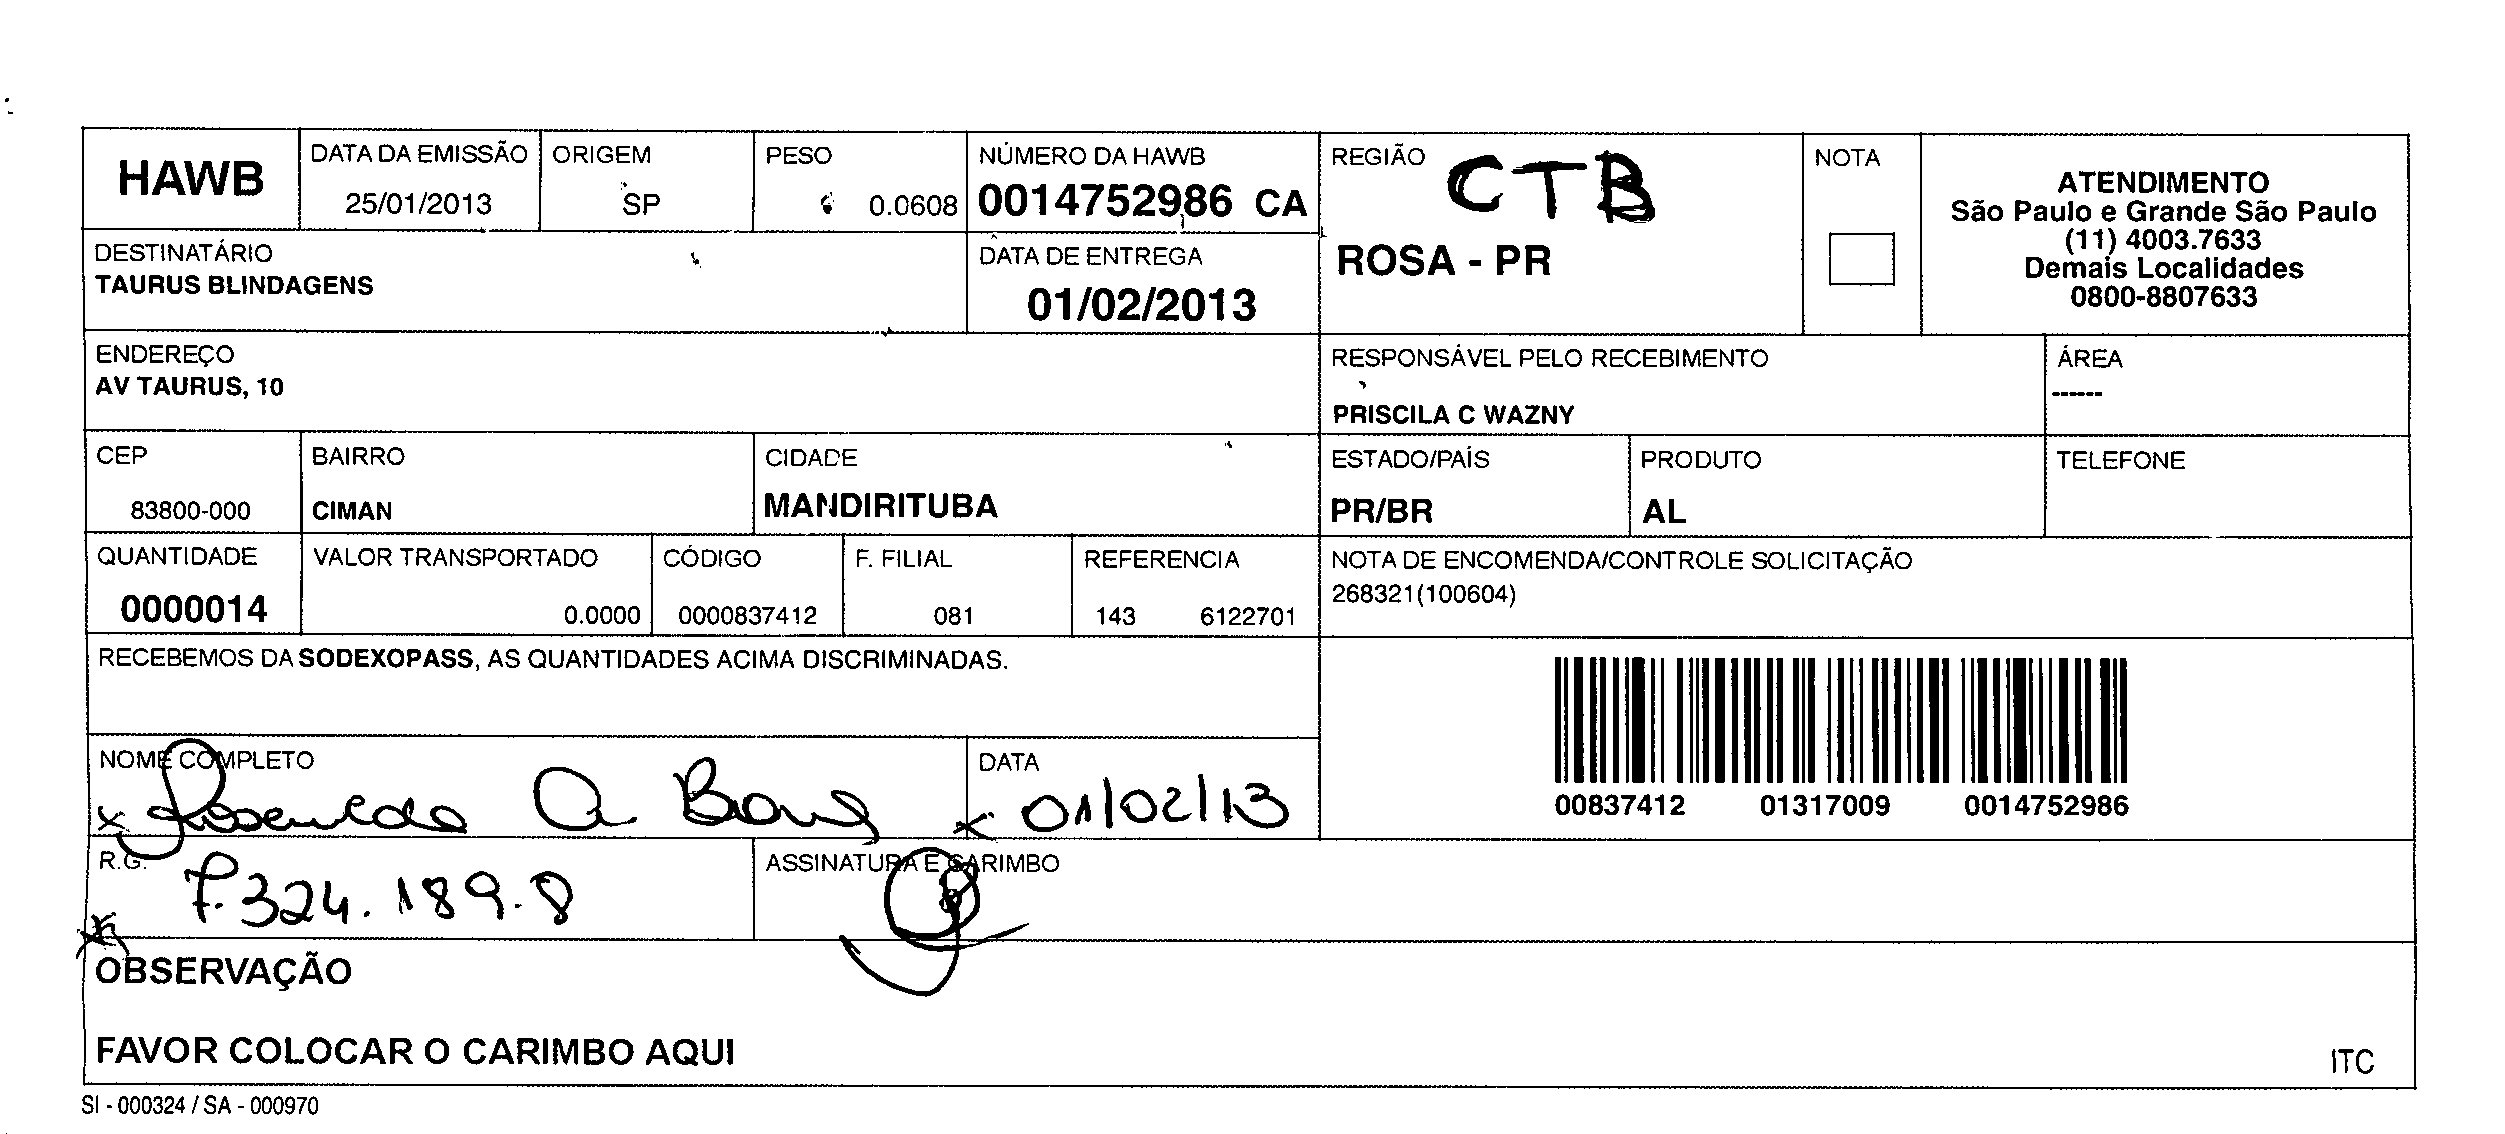 HAWB
DATA DA EMISSÃO
25/01/2013
ORIGEM
SP
PESO
0.0608
NÚMERO DA HAWB
0014752986 CA
REGIÃO
CTB
ROSA - PR
NOTA
ATENDIMENTO
São Paulo e Grande São Paulo
(11) 4003.7633
Demais Localidades
0800-8807633
DESTINATÁRIO
TAURUS BLINDAGENS
DATA DE ENTREGA
01/02/2013
ENDEREÇO
AV TAURUS, 10
RESPONSÁVEL PELO RECEBIMENTO
PRISCILA C WAZNY
ÁREA
------
CEP
83800-000
BAIRRO
CIMAN
CIDADE
MANDIRITUBA
ESTADO/PAÍS
PR/BR
PRODUTO
AL
TELEFONE
QUANTIDADE
0000014
VALOR TRANSPORTADO
0.0000
CÓDIGO
0000837412
F. FILIAL
081
REFERENCIA
143 6122701
NOTA DE ENCOMENDA/CONTROLE SOLICITAÇÃO
268321(100604)
RECEBEMOS DA SODEXOPASS, AS QUANTIDADES ACIMA DISCRIMINADAS.
00837412 01317009 0014752986
NOME COMPLETO
x
DATA
x 01/02/13
R.G.
7.324.189.8
ASSINATURA E CARIMBO
OBSERVAÇÃO
FAVOR COLOCAR O CARIMBO AQUI
ITC
SI - 000324 / SA - 000970